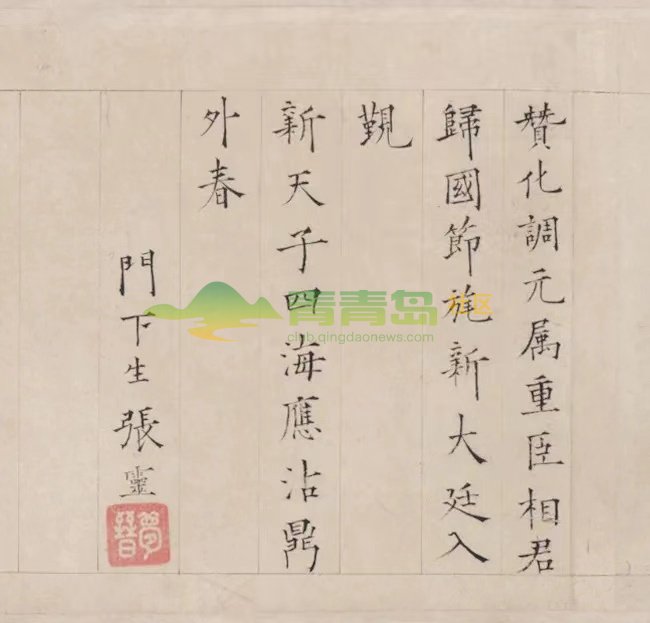 贊化調元属重臣相君
歸國節旄新大廷入
覲
新天子四海應沾鼎
外春
門下生張靈
夢晉
青青岛社区
club.qingdaonews.com